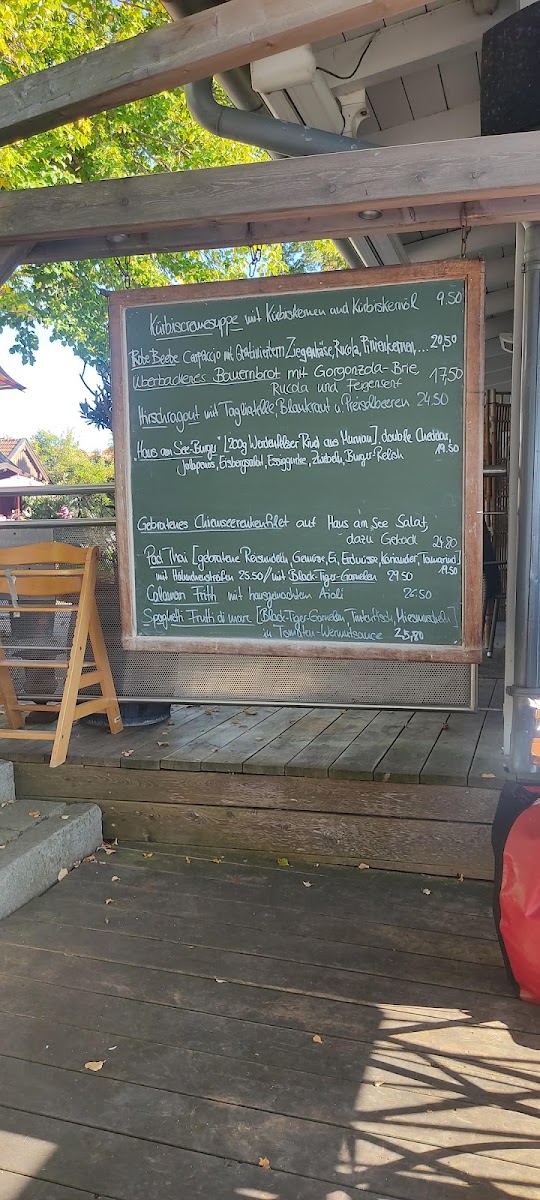 Kürbiscremesuppe mit Kürbiskernen und Kürbiskernöl 9.50
Rote Beete Carpaccio mit Gratiniertem Ziegenkäse, Rucola, Pinienkernen,... 20,50
Überbackenes Bauernbrot mit Gorgonzola-Brie 17,50
Rucola und Feigensenf
Hirschragout mit Tagliatelle, Blaukraut u. Preiselbeeren 24.50
"Haus am See-Burger" [200g Werdenfelser Rind aus Murnau], double Cheddar,
Jalapenos, Eisbergsalat, Essiggurke, Zwiebeln, Burger-Relish 19.50
Gebratenes Chiemseerenkenfilet auf Haus am See Salat,
dazu Gebäck 24.80
Pad Thai [gebratene Reisnudeln, Gemüse, Ei, Erdnüsse, Koriander, Tamarind] 19.50
mit Hähnchenstreifen 25.50 / mit Black-Tiger-Garnelen 29.50
Calamari Fritti mit hausgemachten Aioli 26.50
Spaghetti Frutti di mare [Black-Tiger-Garnelen, Tintenfisch, Miesmuscheln]
in Tomaten-Wermutsauce 25,80